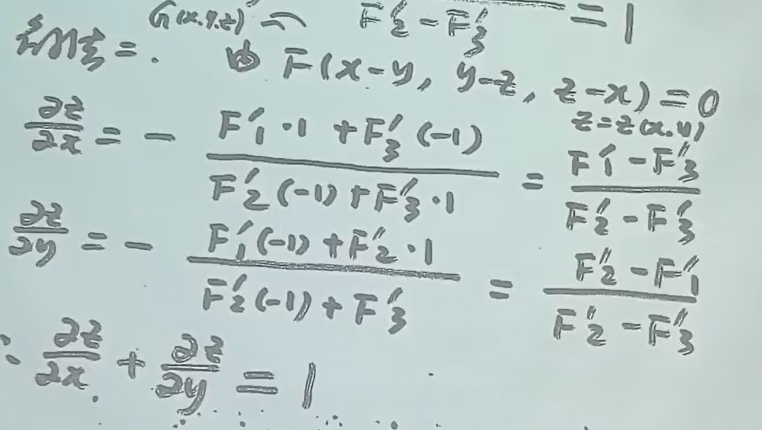 G(x,y,z) F'₂-F'₃ = 1
解法二. 由 F(x-y, y-z, z-x)=0
z=z(x,y)
∂z/∂x = - (F'₁·1+F'₃(-1))/(F'₂(-1)+F'₃·1) = (F'₁-F'₃)/(F'₂-F'₃)
∂z/∂y = - (F'₁(-1)+F'₂·1)/(F'₂(-1)+F'₃) = (F'₂-F'₁)/(F'₂-F'₃)
∴ ∂z/∂x + ∂z/∂y = 1